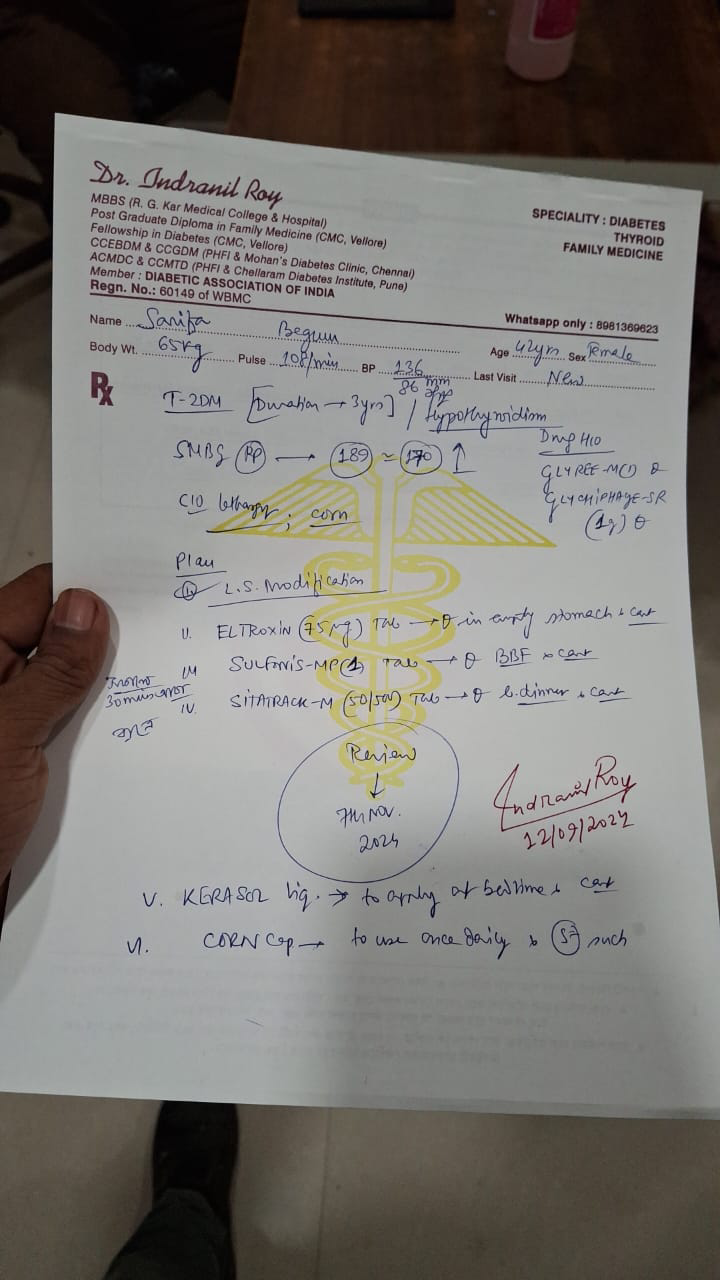 Dr. Indranil Roy
MBBS (R. G. Kar Medical College & Hospital)
Post Graduate Diploma in Family Medicine (CMC, Vellore)
Fellowship in Diabetes (CMC, Vellore)
CCEBDM & CCGDM (PHFI & Mohan's Diabetes Clinic, Chennai)
ACMDC & CCMTD (PHFI & Chellaram Diabetes Institute, Pune)
Member : DIABETIC ASSOCIATION OF INDIA
Regn. No.: 60149 of WBMC
SPECIALITY : DIABETES
THYROID
FAMILY MEDICINE
Whatsapp only : 8981369623
Name Sarifa Begum Age 42yrs Sex Female
Body Wt. 65kg Pulse 108/min BP 136/86 mm Last Visit New
Rx
T-2DM [Duration → 3yrs] / Hypothyroidism
SMBG PP → 189 ≈ 170 ↑
C/O lethargy ; corn
Drug H/O
GLYCHIPHAGE-SR
(1g)
Plan
L.S. Modification
II. ELTROXIN (75 µg) Tab → in empty stomach cont
III SULFONIS-MP(1) Tab → BBF cont
IV. SITATRACK-M (50/500) Tab → b. dinner cont
Review
↓
7th Nov.
2024
Indranil Roy
12/09/2024
V. KERASOL liq. → to apply at bedtime cont
VI. CORN Cap → to use once daily 5 such